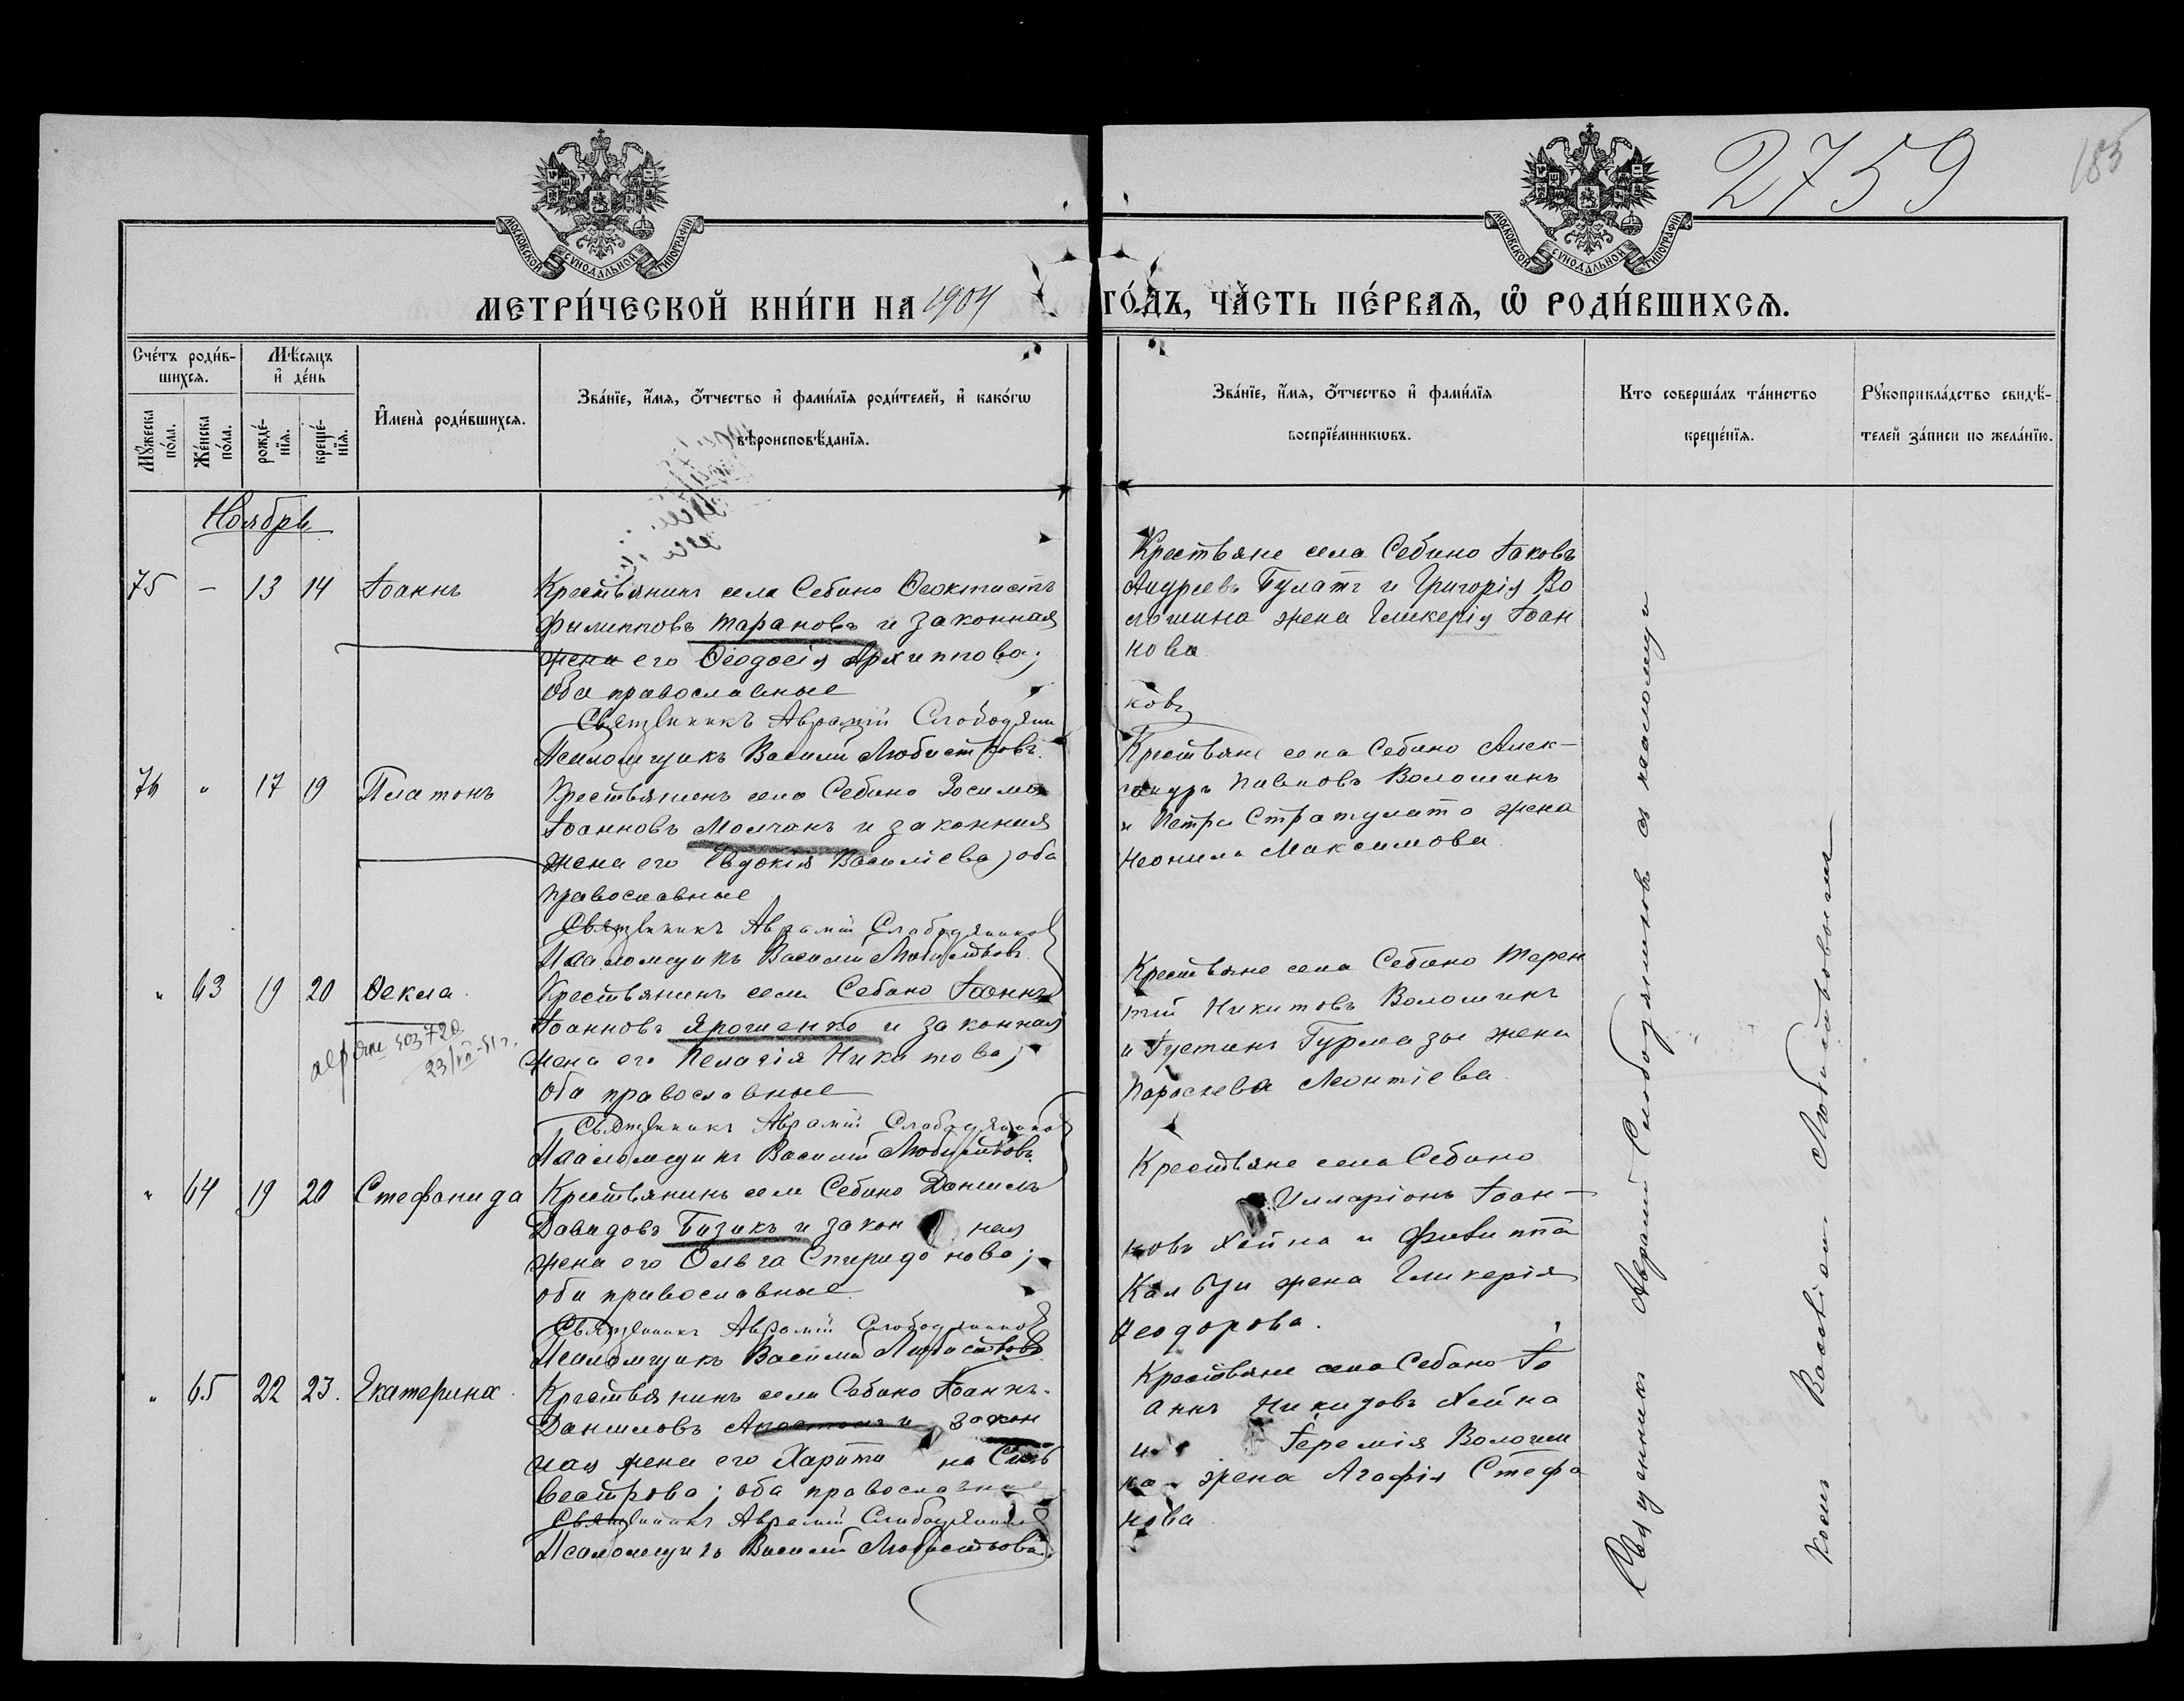 2759
185
МОСКОВСКОЙ СУНОДАЛЬНОЙ ТИПОГРАФІИ
МОСКОВСКОЙ СУНОДАЛЬНОЙ ТИПОГРАФІИ
МЕТРИ́ЧЕСКОЙ КНИ́ГИ НА 1904
ГО́ДЪ, ЧА́СТЬ ПЕ́РВАЯ, Ѽ РОДИ́ВШИХСЯ.
Сче́тъ роди́в-
шихся.
Мѣ́сяцъ
и҆ де́нь
Мꙋ́жеска
по́ла.
Же́нска
по́ла.
рожде́-
нїя.
креще́-
нїя.
И҆мена̀ роди́вшихся.
Зва́нїе, и҆́мя, ѻ҆́тчество и҆ фами́лїя роди́телей, и҆ како́гѡ
вѣроисповѣ́данїя.
Зва́нїе, и҆́мя, ѻ҆́тчество и҆ фами́лїя
воспрїе́мникѡвъ.
Кто соверша́лъ та́инство
креще́нїя.
Рꙋкоприкла́дство свидѣ́-
телей за́писи по жела́нїю.
Ноябрь
75 — 13 14 Іоаннъ
Крестьянинъ села Себино Ѳеоктистъ
Филипповъ Тарановъ и законная
жена его Ѳеодосія Архиппова;
оба православные
Священникъ Аврамій
Псаломщикъ Василій
Крестьяне села Себино Іаковъ
Андреевъ Булатъ и Григорія Во
лошина жена Гликерія Іоан
нова
ковъ
76 " 17 19 Платонъ
Крестьянинъ села Себино Зосима
Іоанновъ Молчанъ и законная
жена его Евдокія Василіева; оба
православные
Священникъ Аврамій
Псаломщикъ Василій
Крестьяне села Себино Алек-
сандръ Павловъ Волошинъ
и Петра Стратулата жена
Неонила Максимова.
" 63 19 20 Ѳекла.
503720
23/VII-51г.
Крестьянинъ села Себино Іоаннъ
Іоанновъ Ярошенко и законная
жена его Пелагія Никитова;
оба православные
Священникъ Аврамій
Псаломщикъ Василій
Крестьяне села Себино Терен
тій Никитовъ Волошинъ
и Іустина Гурмазы жена
Параскева Леонтіева.
" 64 19 20 Стефанида
Крестьянинъ села Себино Даніилъ
Давидовъ Бузикъ и закон ная
жена его Ольга Спиридонова;
оба православные.
Священникъ Аврамій
Псаломщикъ Василій
Крестьяне села Себино
Илларіонъ Іоан-
новъ Хейна и Филиппа
жена Гликерія
Ѳеодорова.
" 65 22 23. Екатерина.
Крестьянинъ села Себино Іоаннъ
Даниловъ Апостолъ и закон
ная жена его Харити на Силь
вестрова; оба православные
Священникъ Аврамій
Псаломщикъ Василій
Крестьяне села Себино Іо
аннъ Хейна
и Іеремія Волоши
на жена Агафія Стефа
нова
Священникъ Аврамій Слободяниковъ съ псаломщи
комъ Василіемъ